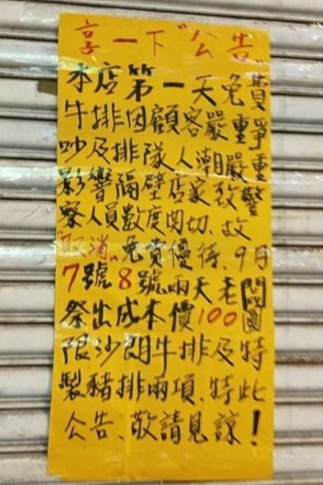 享一下"公告"
本店第一天免費
牛排因顧客嚴重爭
吵及排隊人潮嚴重
影響隔壁店家致警
察人員數度関切、故
"取消"免費優待、9月
7號8號兩天老闆
祭出成本價100圓
限沙朗牛排及特
製豬排兩項、特此
公告、敬請見諒!